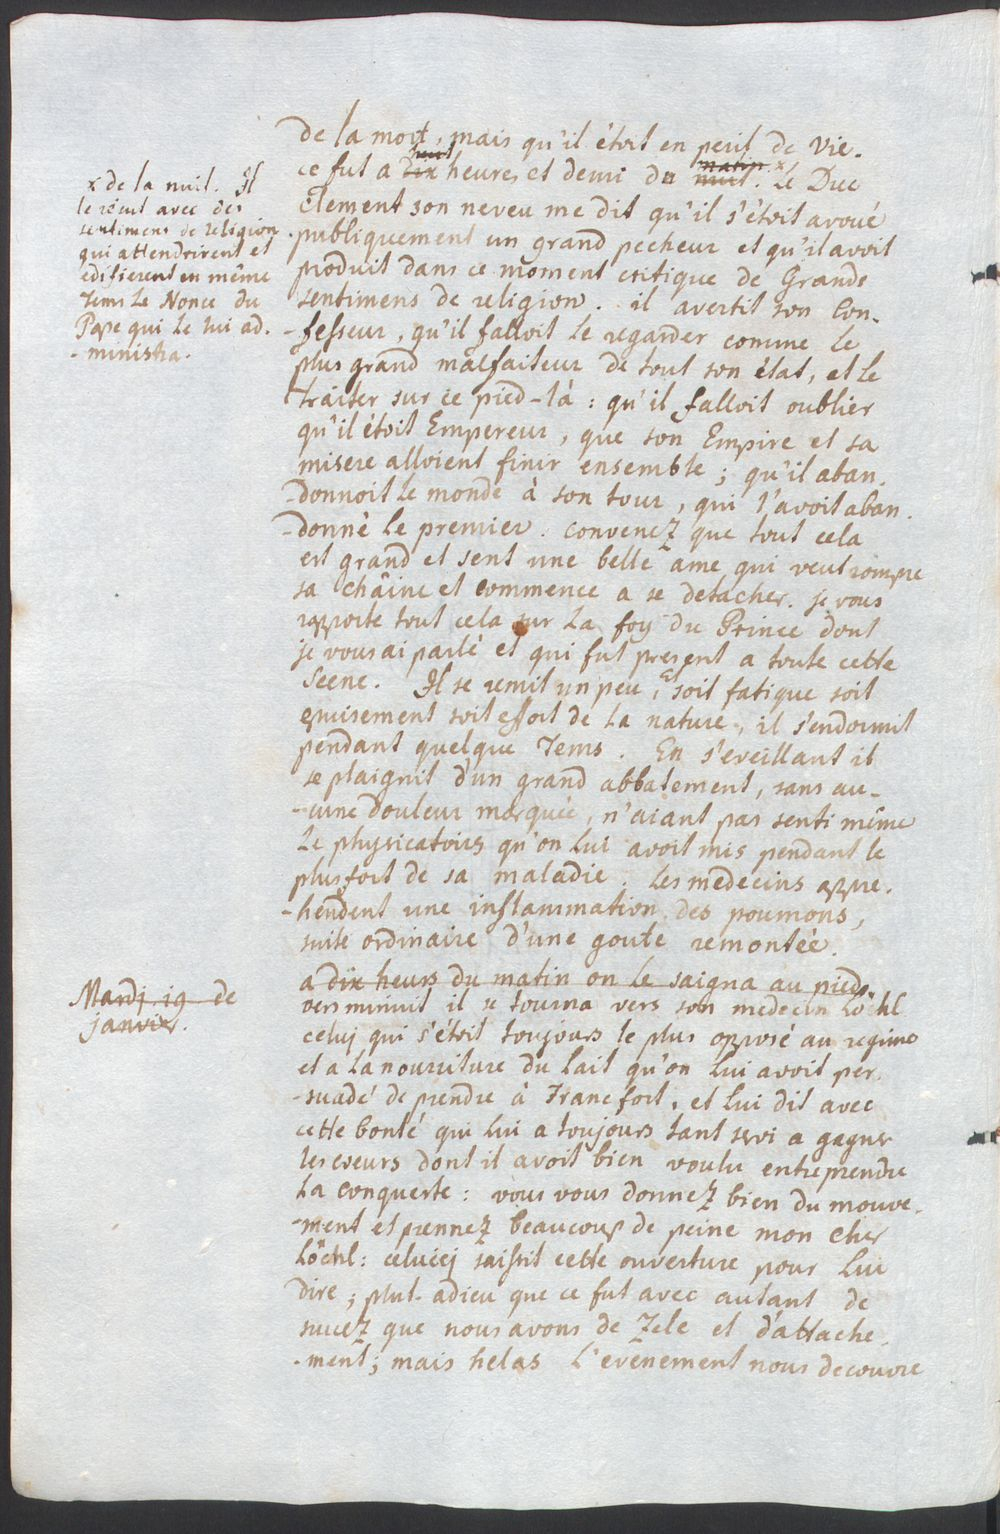 de la mort, mais qu'il étoit en peril de vie.
ce fut a dix huit heures et demi du nuit matin x. Le Duc
Clement son neveu me dit qu'il s'étoit avoué
publiquement un grand pecheur et qu'il avoit
produit dans ce moment critique de Grands
sentimens de religion. il avertit son Con-
-fesseur, qu'il falloit le regarder comme le
plus grand malfaiteur de tout son état, et le
traiter sur ce pied-là: qu'il falloit oublier
qu'il étoit Empereur, que son Empire et sa
misere alloient finir ensemble; qu'il aban-
-donnoit le monde à son tour, qui l'avoit aban-
-donné le premier. convenez que tout cela
est grand et sent une belle ame qui veut rompre
sa châine et commence a se detacher. je vous
rapporte tout cela sur la foy du Prince dont
je vous ai parlé et qui fut present a toute cette
Scene. Il se remit un peu, et soit fatique soit
epuisement soit effort de la nature, il s'endormit
pendant quelque Tems. En s'eveillant il
se plaignit d'un grand abbatement, sans au-
-cune douleur marquée, n'aiant pas senti même
le physicatoirs qu'on lui avoit mis pendant le
plus fort de sa maladie. Les medecins appre-
-hendent une inflammation des poumons,
suite ordinaire d'une goute remontée.
a dix heurs du matin on le saigna au pieds.
vers minuit il se tourna vers son medecin Löchl
celuj qui s'étoit toujours le plus opposé au regime
et a la nourriture du lait qu'on lui avoit per-
-suadé de prendre à Francfort, et lui dit avec
cette bonté qui lui a toujours tant servi a gagner
les coeurs dont il avoit bien voulu entreprendre
la conqueste: vous vous donnez bien du mouve-
-ment et prennez beaucoup de peine mon cher
Löchl: celuicj saissit cette ouverture pour lui
dire; plut-adieu que ce fut avec autant de
succez que nous avons de Zele et d'attache-
-ment; mais helas l'evenement nous decouvre
x de la nuit. Il
le reçut avec des
sentimens de religion
qui attendrirent et
edifierent en même
Tems le Nonce du
Pape qui le lui ad-
-ministra.
Mardj 19 de
janvier.